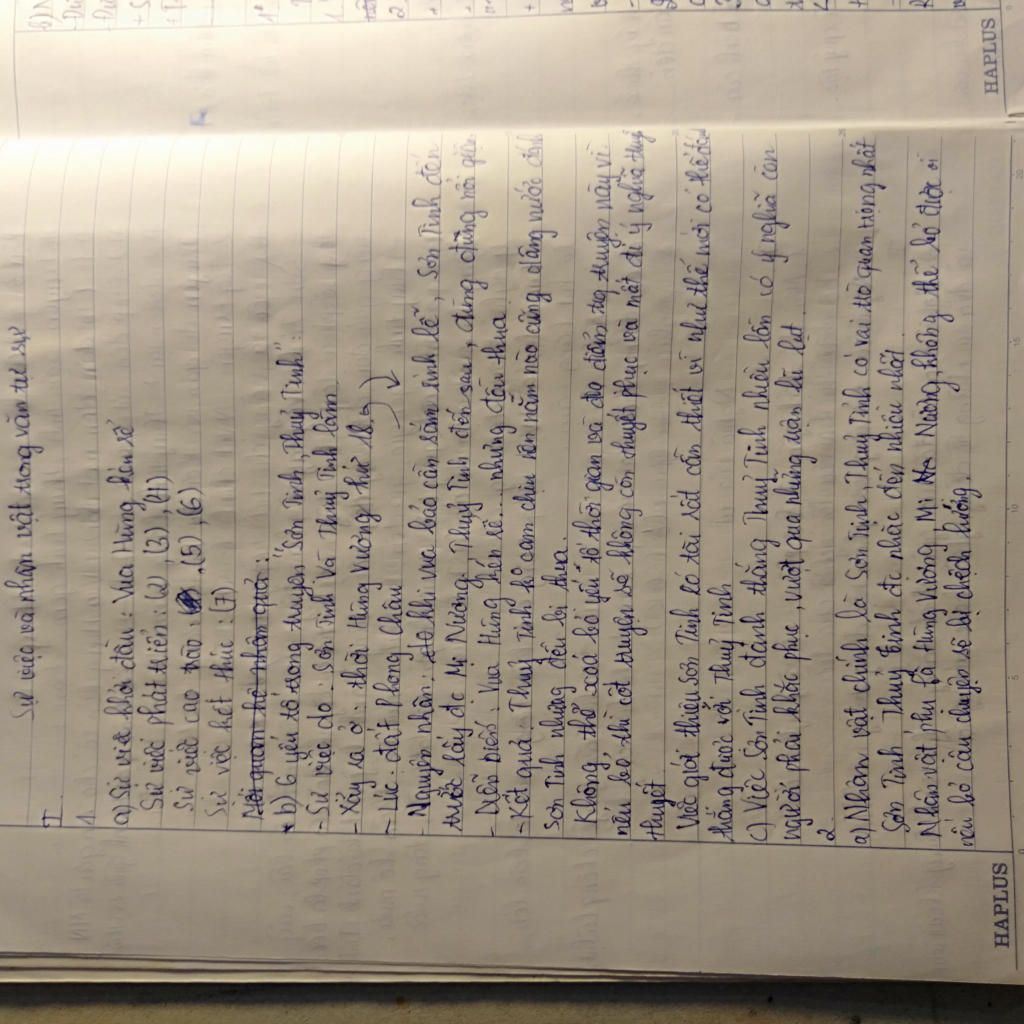 Sự việc và nhận vật trong văn tự sự
I.
1.
a) Sự việc khởi đầu: Vua Hùng kén rể
Sự việc phát triển: (2), (3), (4)
Sự việc cao trào (5), (6)
Sự việc kết thúc: (7)
Mối quan hệ nhân quả:
b) 6 yếu tố trong truyện "Sơn Tinh, Thuỷ Tinh":
- Sự việc do: Sơn Tinh và Thuỷ Tinh làm
- Xảy ra ở: thời Hùng vương thứ 18
- Lúc: đất Phong Châu
- Nguyên nhân: khi vua báo cần sắm sính lễ, Sơn Tinh đến
trước lấy đc Mị Nương, Thuỷ Tinh đến sau, đùng đùng nổi giận
- Diễn biến: Vua Hùng kén rể... nhưng đều thua
- Kết quả: Thuỷ Tinh ko cam chịu nên năm nào cũng dâng nước đánh
Sơn Tinh nhưng đều bị thua.
Không thể xoá bỏ yếu tố thời gian và địa điểm trg truyện này vì
nếu bỏ thì cốt truyện sẽ không còn thuyết phục và mất đi ý nghĩa truyền
thuyết
Việc giới thiệu Sơn Tinh có tài rất cần thiết vì như thế mới có thể
thắng được với Thuỷ Tinh
c) Việc Sơn Tinh đánh thắng Thuỷ Tinh nhiều lần có ý nghĩa con
người phải khắc phục, vượt qua những nạn lũ lụt
2.
a) Nhân vật chính là Sơn Tinh Thuỷ Tinh có vai trò quan trọng nhất
Sơn Tinh, Thuỷ Tinh đc nhắc đến nhiều nhất
Nhân vật phụ là Hùng Vương, Mị Nương, không thể bỏ được vì
nếu bỏ câu chuyện sẽ bị chệch hướng.
HAPLUS
HAPLUS